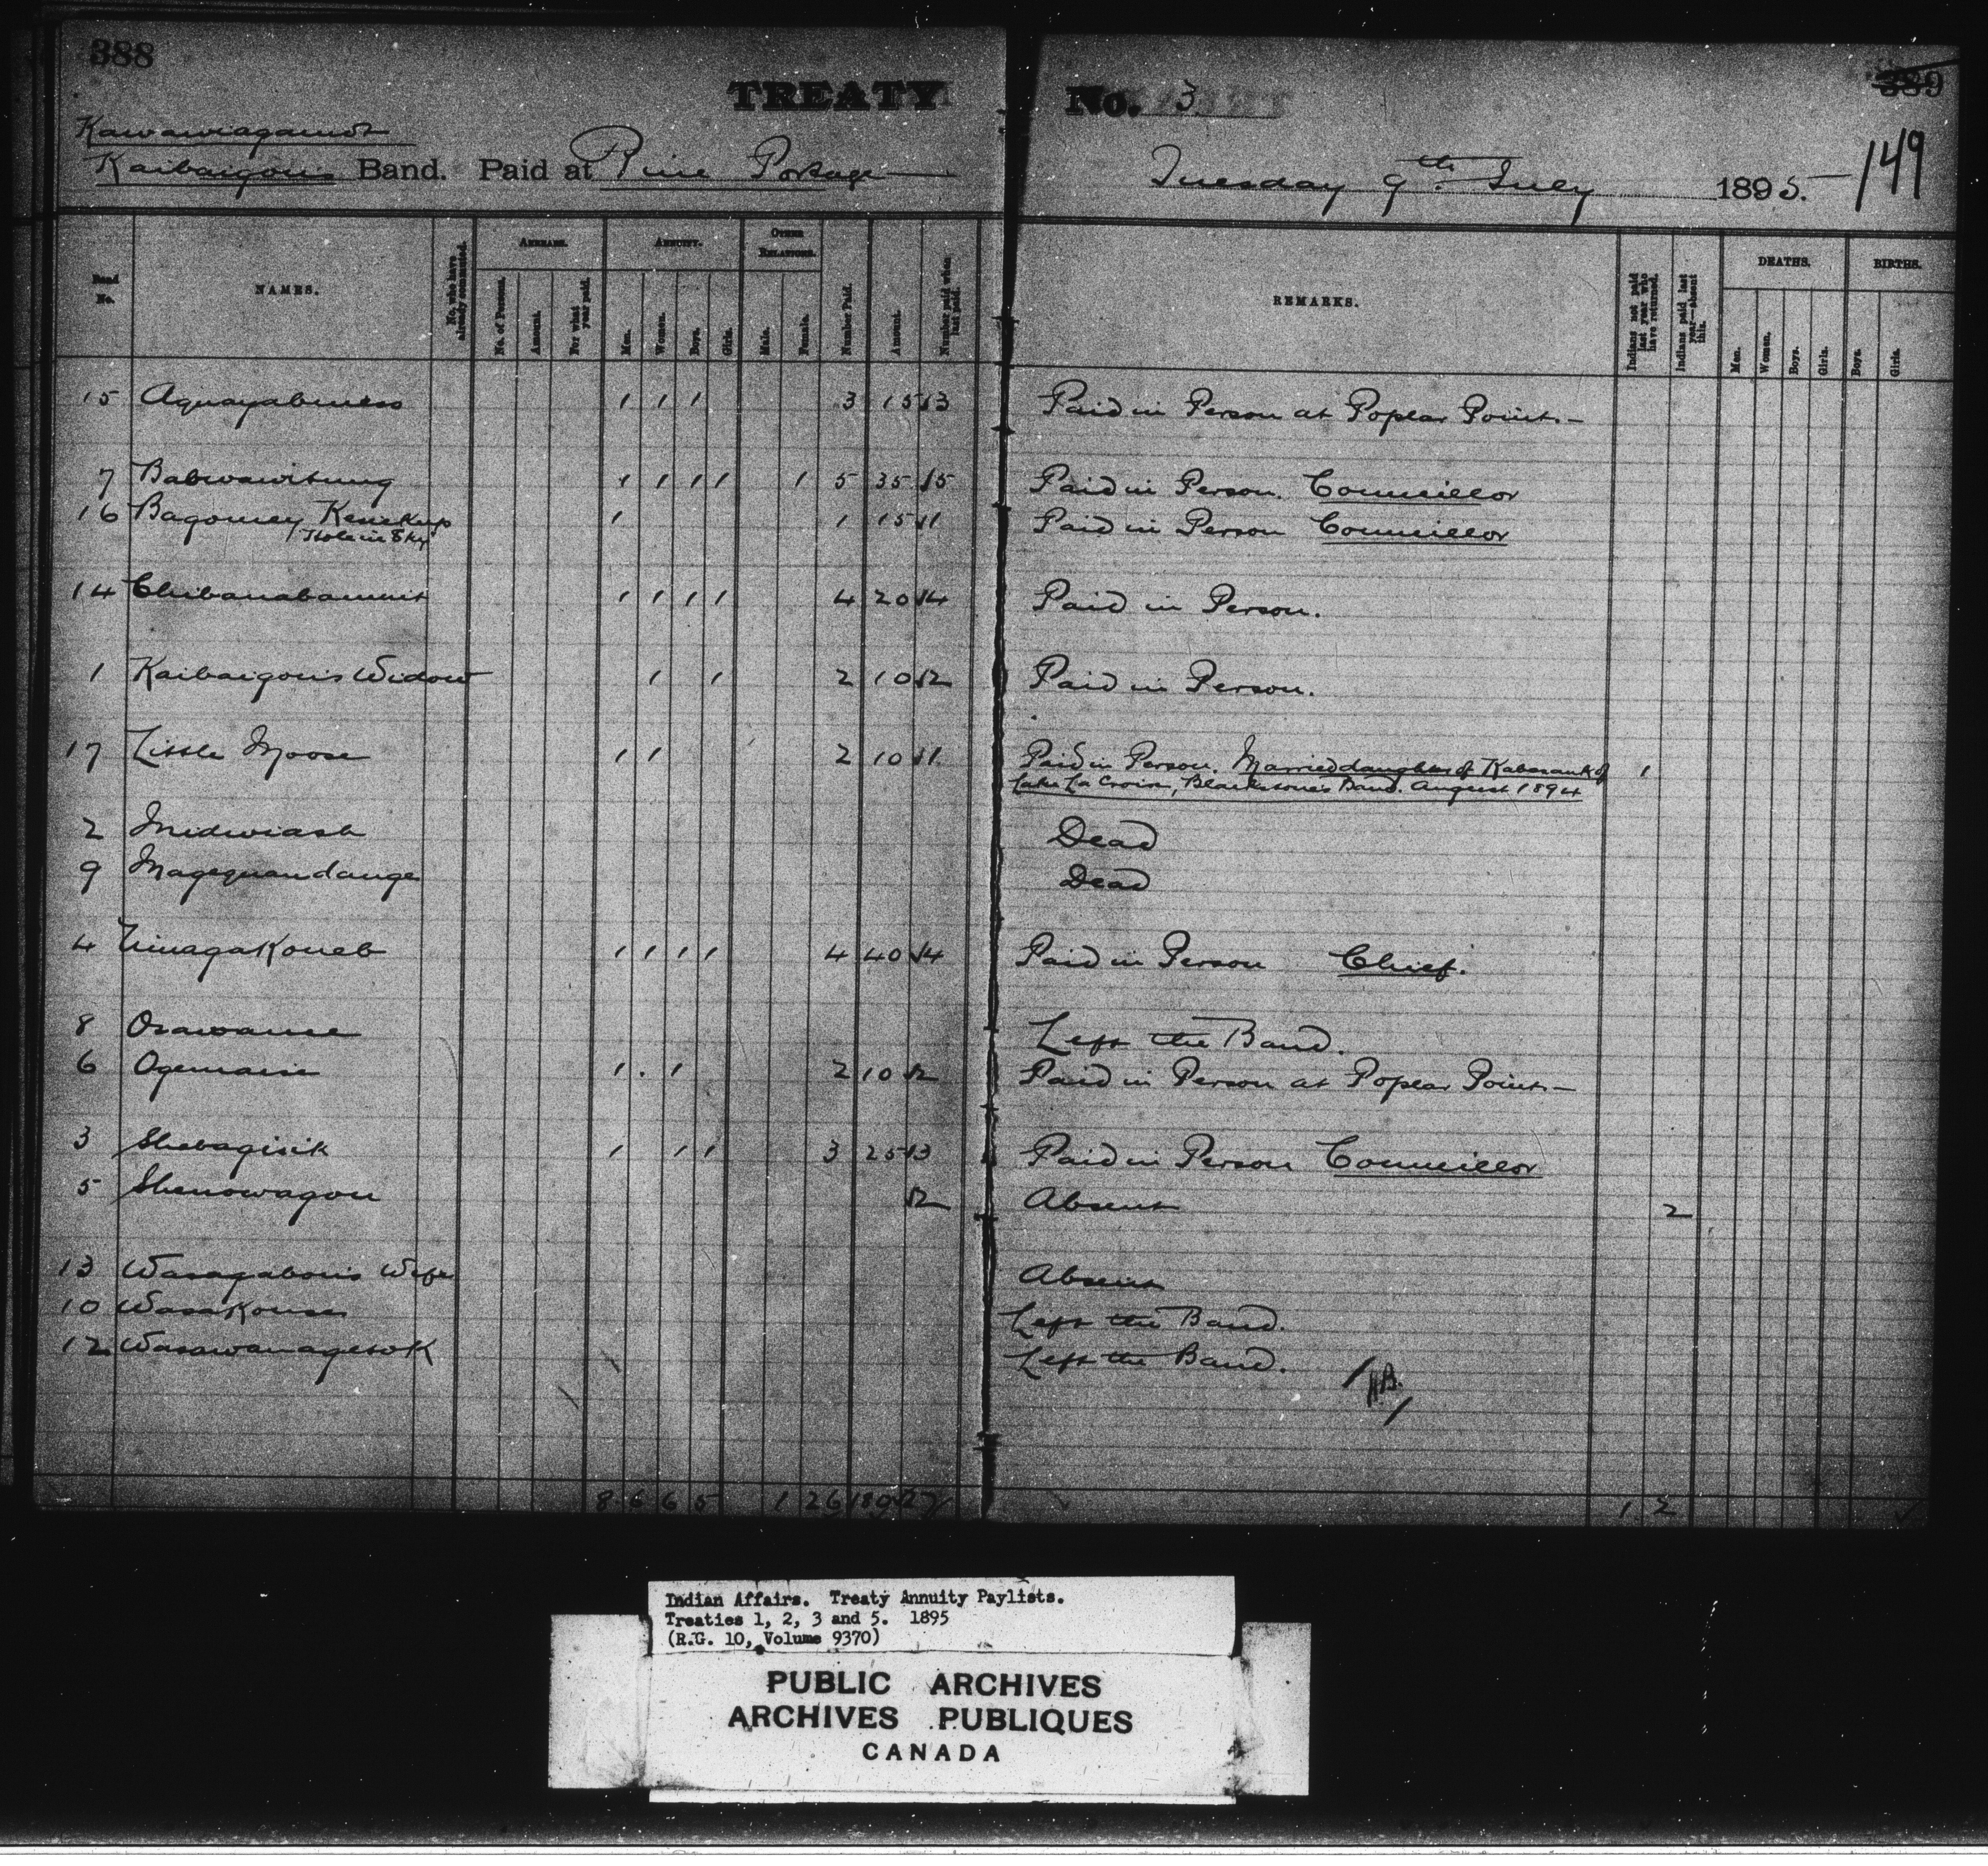 388
TREATY No. 3
389
149
Kawawiagamot
Kaibaigon's Band. Paid at Pine Portage
Tuesday 9th July 1895.
Band No. NAMES. No. who have already commuted. ARREARS. No. of Persons. Amount. For what year paid. ANNUITY. Men. Women. Boys. Girls. OTHER RELATIONS. Male. Female. Number Paid. Amount. Number paid when last paid. REMARKS. Indians not paid last year who have returned. Indians paid last year—absent this. DEATHS. Men. Women. Boys. Girls. BIRTHS. Boys. Girls.
15 Aquayabeness 1 1 1 3 15 3 Paid in Person at Poplar Point.–
7 Babwawitung 1 1 1 1 1 5 35 5 Paid in Person. Councillor
16 Bagoney Kesickup 1 1 15 1 Paid in Person Councillor
Hole in Sky
14 Chibanabamint 1 1 1 1 4 20 4 Paid in Person.
1 Kaibaigon's Widow 1 1 2 10 2 Paid in Person.
17 Little Moose 1 1 2 10 1 Paid in Person. Married daughter of Kabasank of 1
Lake La Croix, Blackstone's Band. August 1894
2 Midwiash Dead
9 Magequandange Dead
4 Ninagakoneb 1 1 1 1 4 40 4 Paid in Person Chief.
8 Osawanse Left the Band.
6 Ogemasie 1 . 1 2 10 2 Paid in Person at Poplar Point.–
3 Shebagisik 1 1 1 3 25 3 Paid in Person Councillor
5 Shenowagon 2 Absent 2
13 Wasagabon's Wife Absent
10 Wasakouse Left the Band.
12 Wasawanagesok Left the Band.
8 6 6 5 1 26 180 27 1 2
Indian Affairs. Treaty Annuity Paylists.
Treaties 1, 2, 3 and 5. 1895
(R.G. 10, Volume 9370)
PUBLIC ARCHIVES
ARCHIVES PUBLIQUES
CANADA